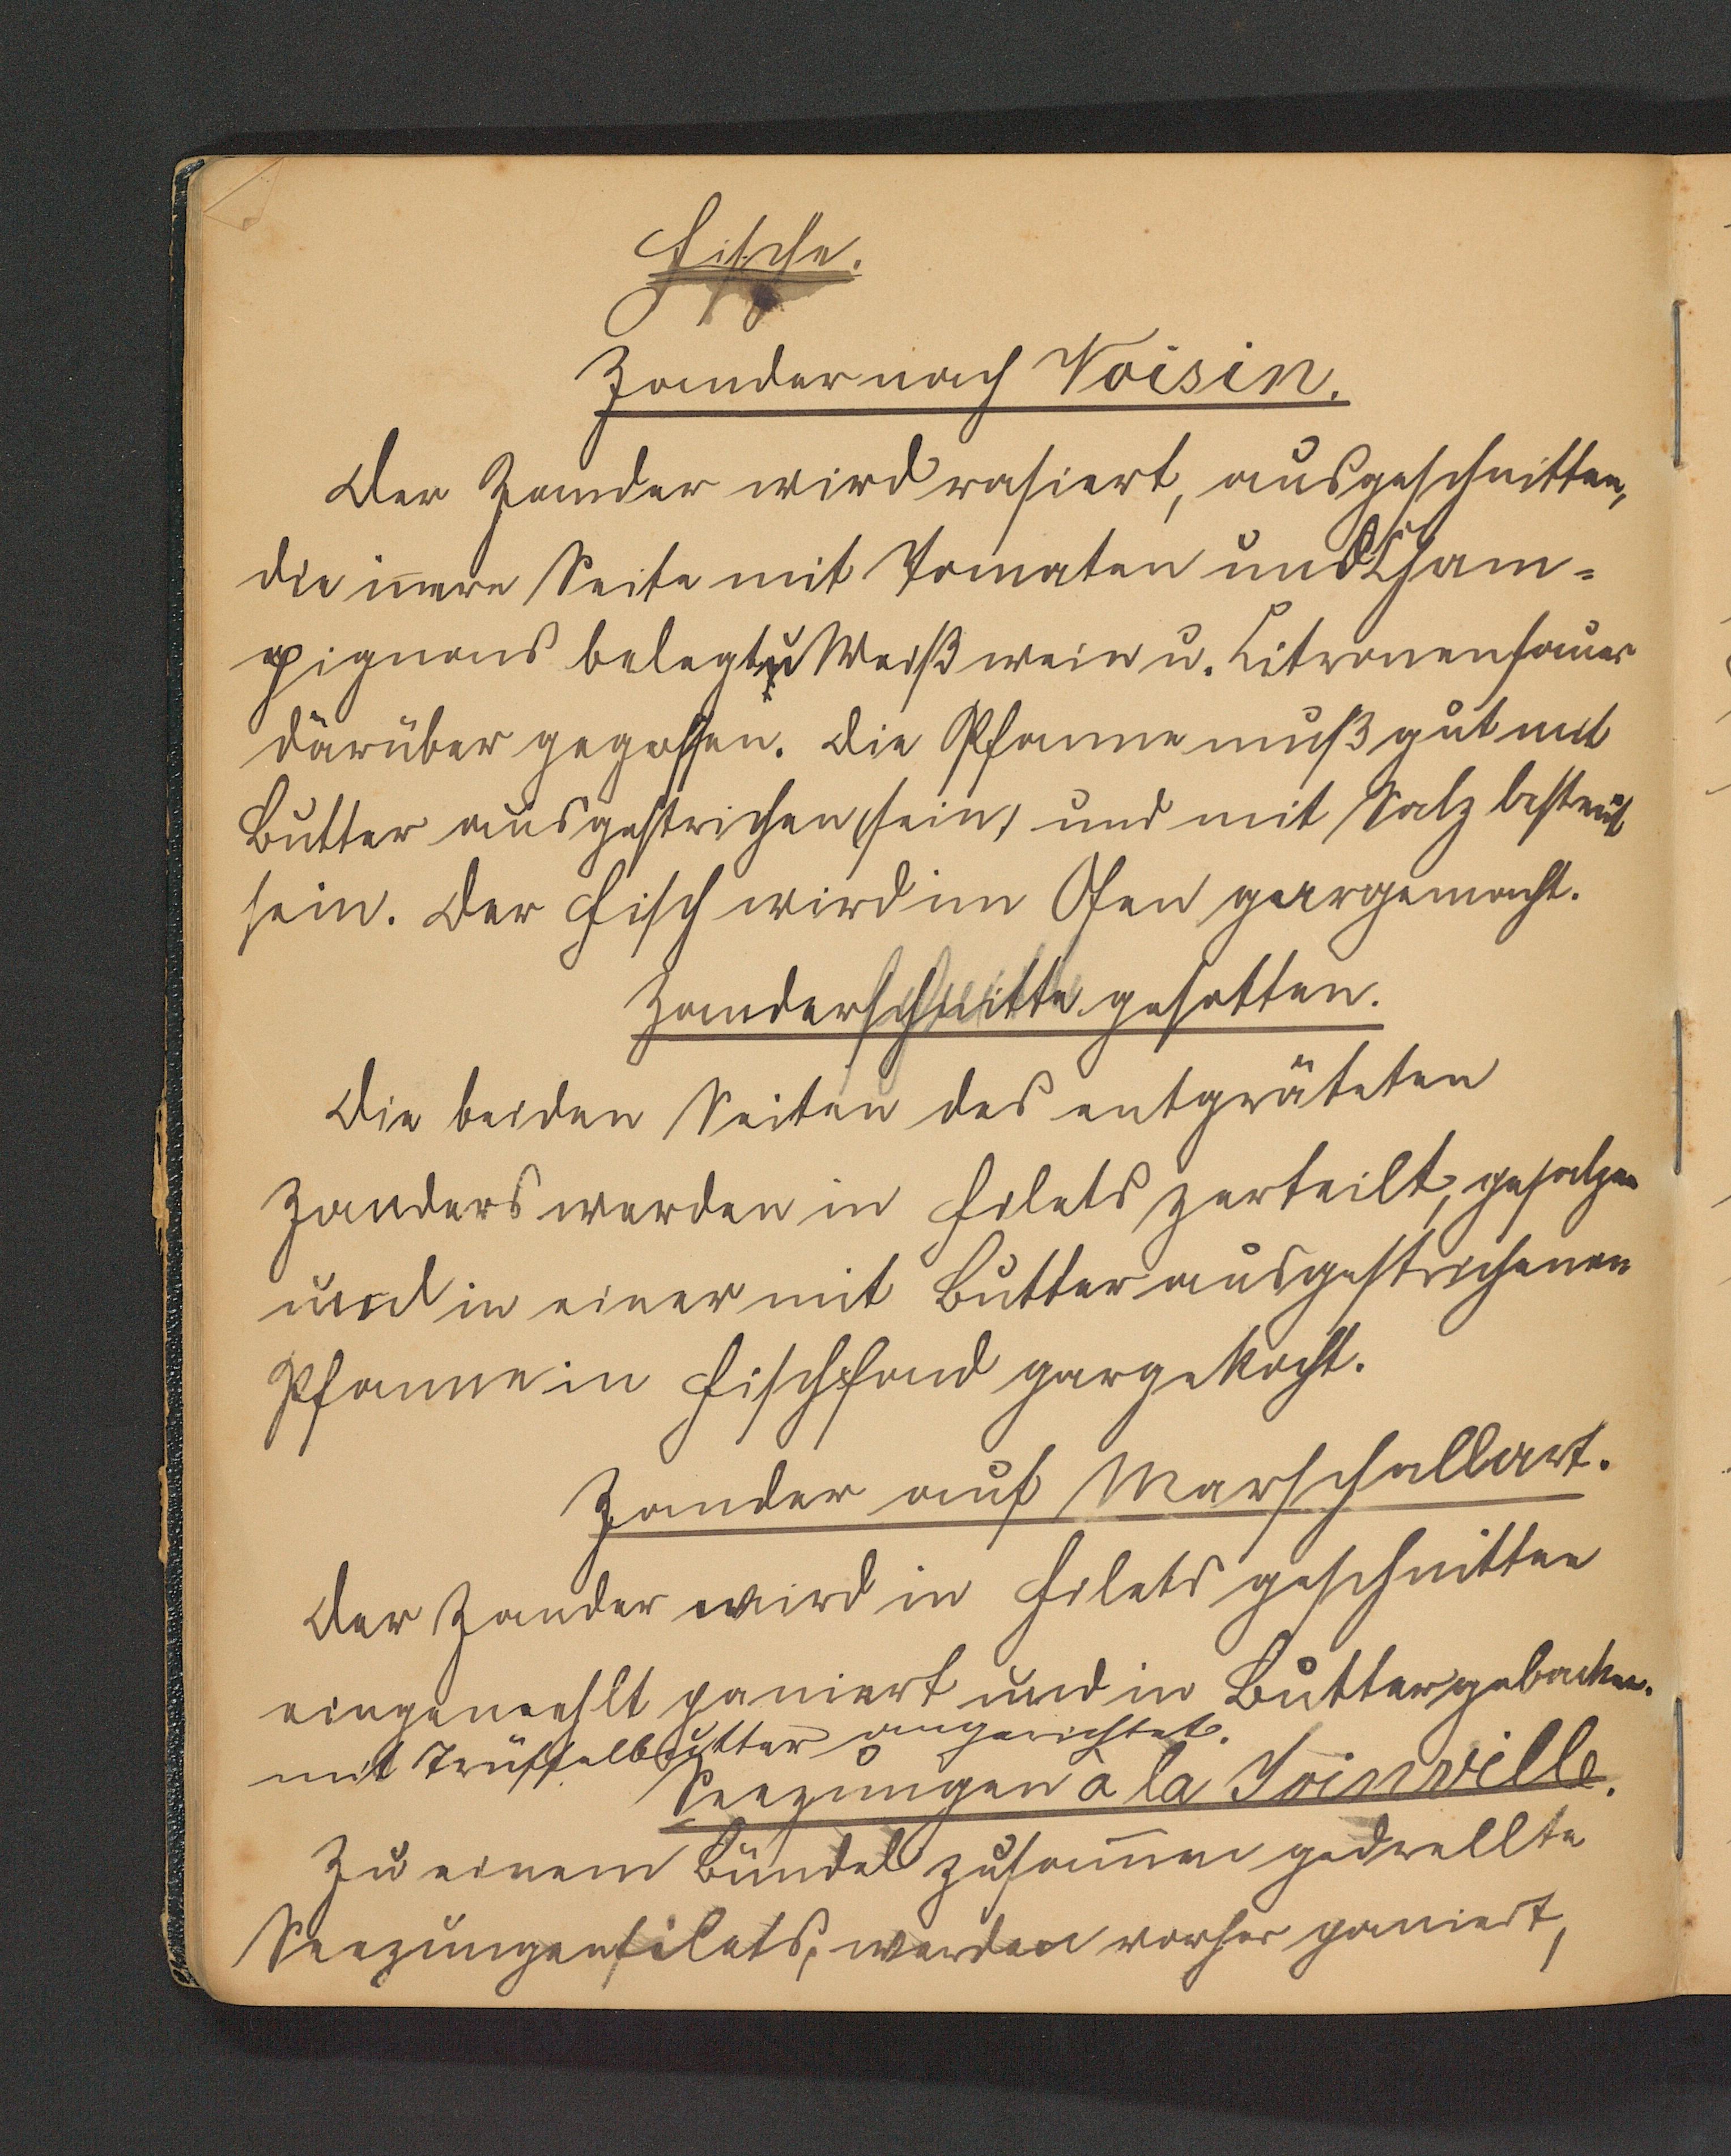 Fische.
Zander nach Voisin.
Der Zander wird rasiert, ausgeschnitten,
die innere Seite mit Tomaten und Cham-
pignons belegt u Weißwein u. Citronensauer
darüber gegossen. Die Pfanne muß gut mit
Butter ausgestrichen (sein) und mit Salz bestreut
sein. Der Fisch wird im Ofen gargemacht.
Zanderschnitte gesotten.
Die beiden Seiten des entgräteten
Zanders werden in Filets zerteilt, gesalzen
und in einer mit Butter ausgestrichenen
Pfanne in Fischfond gargekocht.
Zander auf Marschallart.
Der Zander wird in Filets geschnitten
eingemehlt paniert und in Butter gebacken.
mit Trüffelbutter angerichtet.
Seezungen à la Joinville.
Zu einem Bündel zusammen gedrellte
Seezungenfilets, werden vorher paniert,